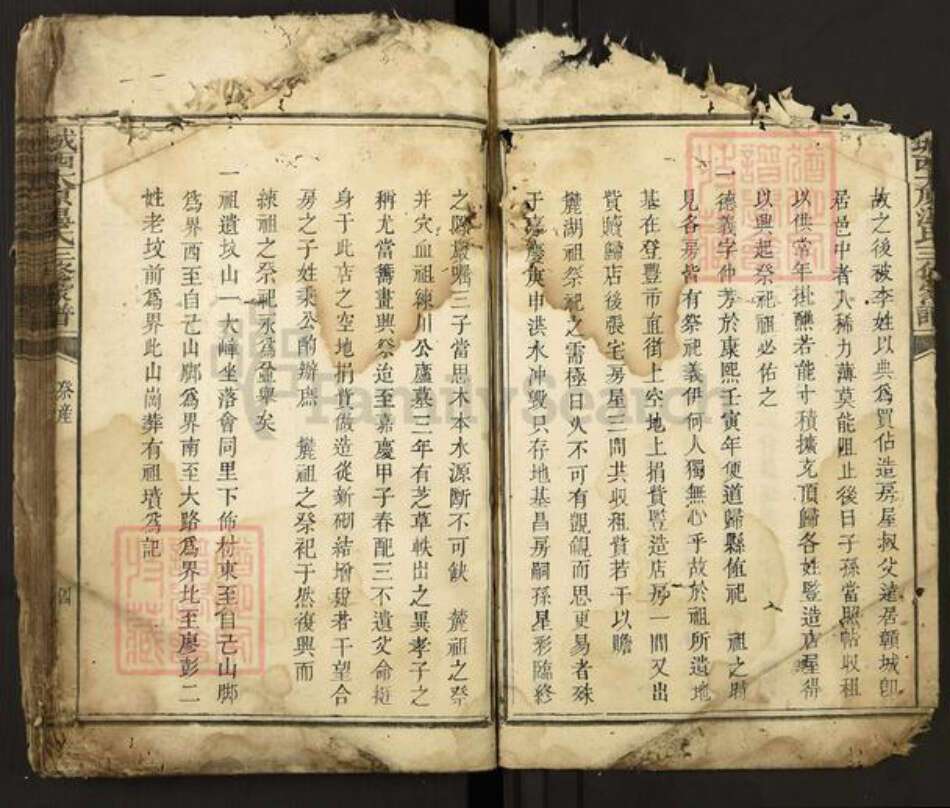 故之後被李姓以典爲買佔造房屋叔父遠居贛城卽
居邑中者人稀力薄莫能阻止後日子孫當照帖收租
以供常年掛醮若能寸積擴充頂歸各姓豎造店屋得
以興起祭祀祖必佑之
一德義字仲芳於康熙壬寅年便道歸縣 祀 祖之時
見各房皆有祭祀義伊何人獨無心乎故於祖所遺地
基在登豐市直街上空地上捐貲豎造店房一間又出
貲贖歸店後張宅房屋三間共収租貲若干以贍
麓湖祖祭祀之需極日久不可有覬覦而思更易者殊
于嘉慶庚申洪水冲毀只存地基昌房嗣孫星彩臨終
之際嚴囑三子當思木本水源斷不可缺 麓祖之祭
并穴血祖練川公廬墓三年有芝草軼出之異孝子之
稱尤當籌畫興祭迨至嘉慶甲子春配三不遺父命挺
身于此店之空地捐貲倣造從新砌結增 若干望合
房之子姓秉公酌辦庶 麓祖之祭祀于然復興而
練祖之祭祀永爲盆舉矣
一祖遺坟山一大嶂坐落會同里下佈村東至自己山脚
爲界西至自己山廓爲界南至大路爲界北至廖彭二
姓老坟前爲界此山崗葬有祖墳爲記
城西 湯氏三修家譜
祭産
四
FamilySearch